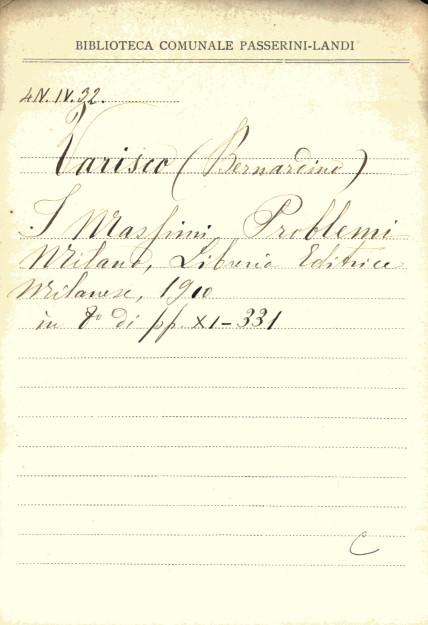 BIBLIOTECA COMUNALE PASSERINI-LANDI
4N.IV.32.
Varisco (Bernardino)
I Massimi Problemi
Milano, Libreria Editrice
Milanese, 1910
in 8º di pp. XI-331
C